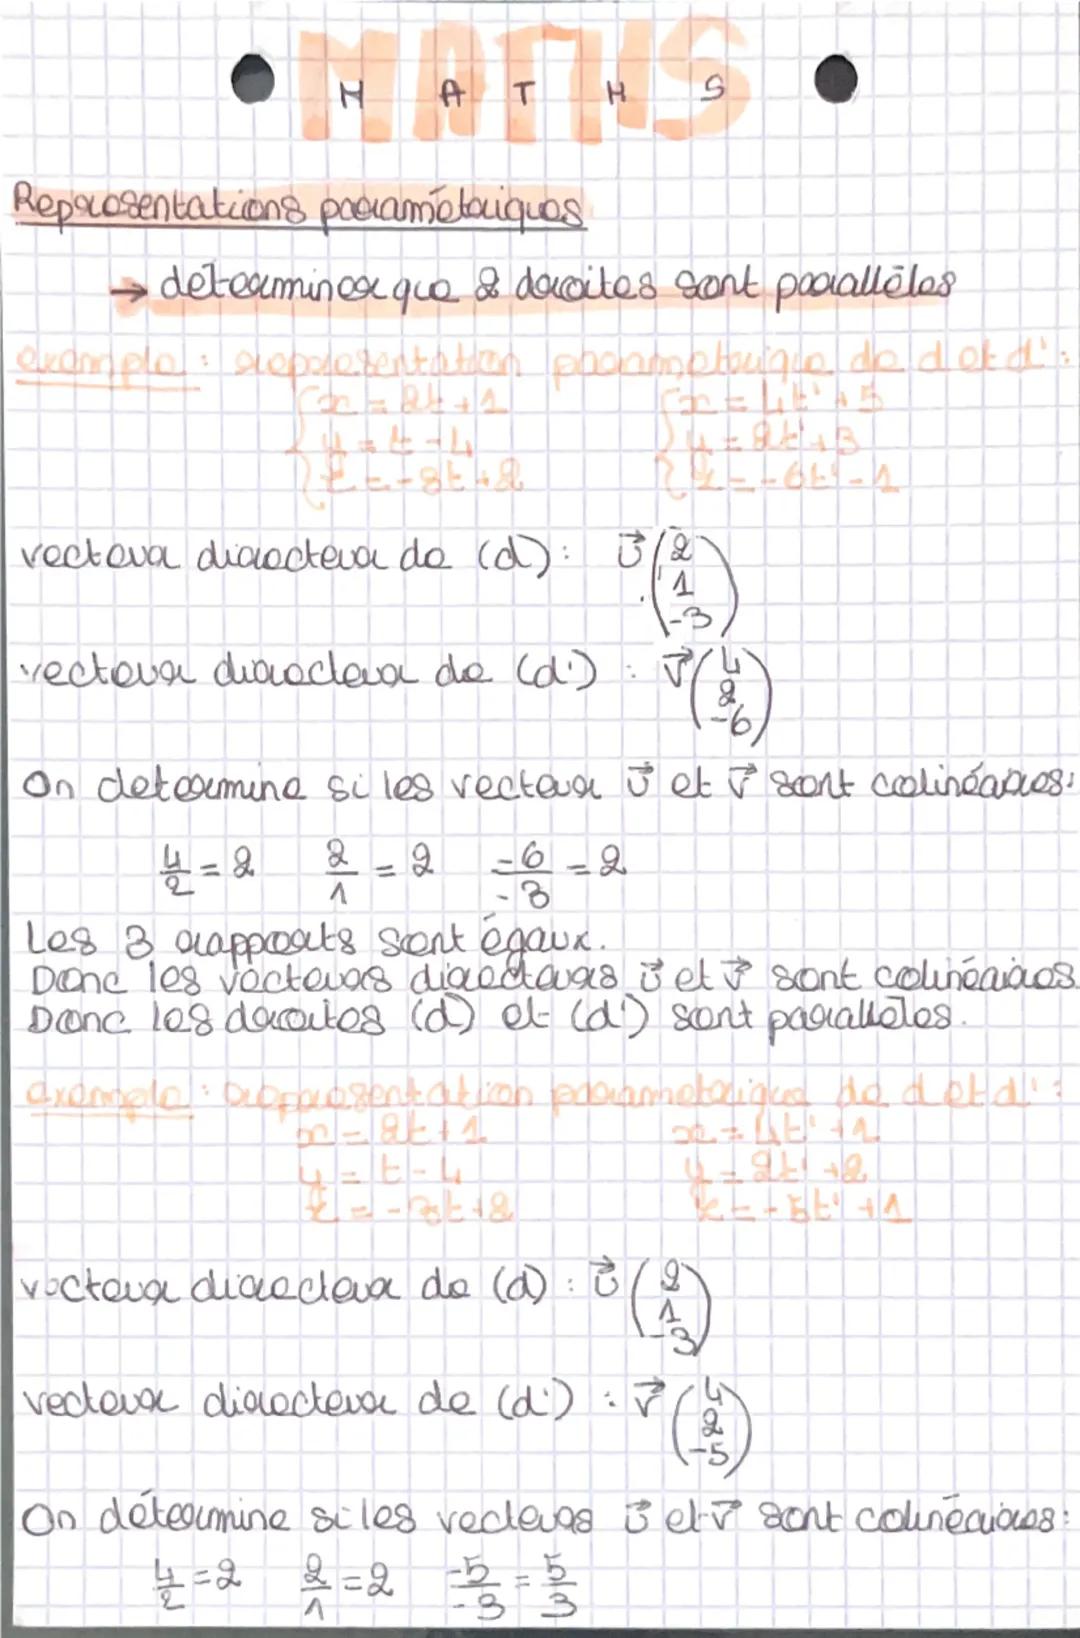 MATHS
M A T H S
Représentations paramétriques
→ déterminer que 2 droites sont parallèles
exemple : représentation paramétrique de d et d' :
{x = 2t + 1 {x = 4t' + 5
{y = t - 4 {y = 2t' + 3
{z = -3t + 2 {z = -6t' - 1
vecteur directeur de (d) : u⃗ (2 1 -3)
vecteur directeur de (d') : v⃗ (4 2 -6)
On détermine si les vecteur u⃗ et v⃗ sont colinéaires :
4/2 = 2 2/1 = 2 -6/-3 = 2
Les 3 rapports sont égaux.
Donc les vecteurs directeurs u⃗ et v⃗ sont colinéaires.
Donc les droites (d) et (d') sont parallèles.
exemple : représentation paramétrique de d et d' :
x = 2t + 1 x = 4t' + 1
y = t - 4 y = 2t' + 2
z = -3t + 2 z = -5t' + 1
vecteur directeur de (d) : u⃗ (2 1 -3)
vecteur directeur de (d') : v⃗ (4 2 -5)
On détermine si les vecteurs u⃗ et v⃗ sont colinéaires :
4/2 = 2 2/1 = 2 -5/-3 = 5/3